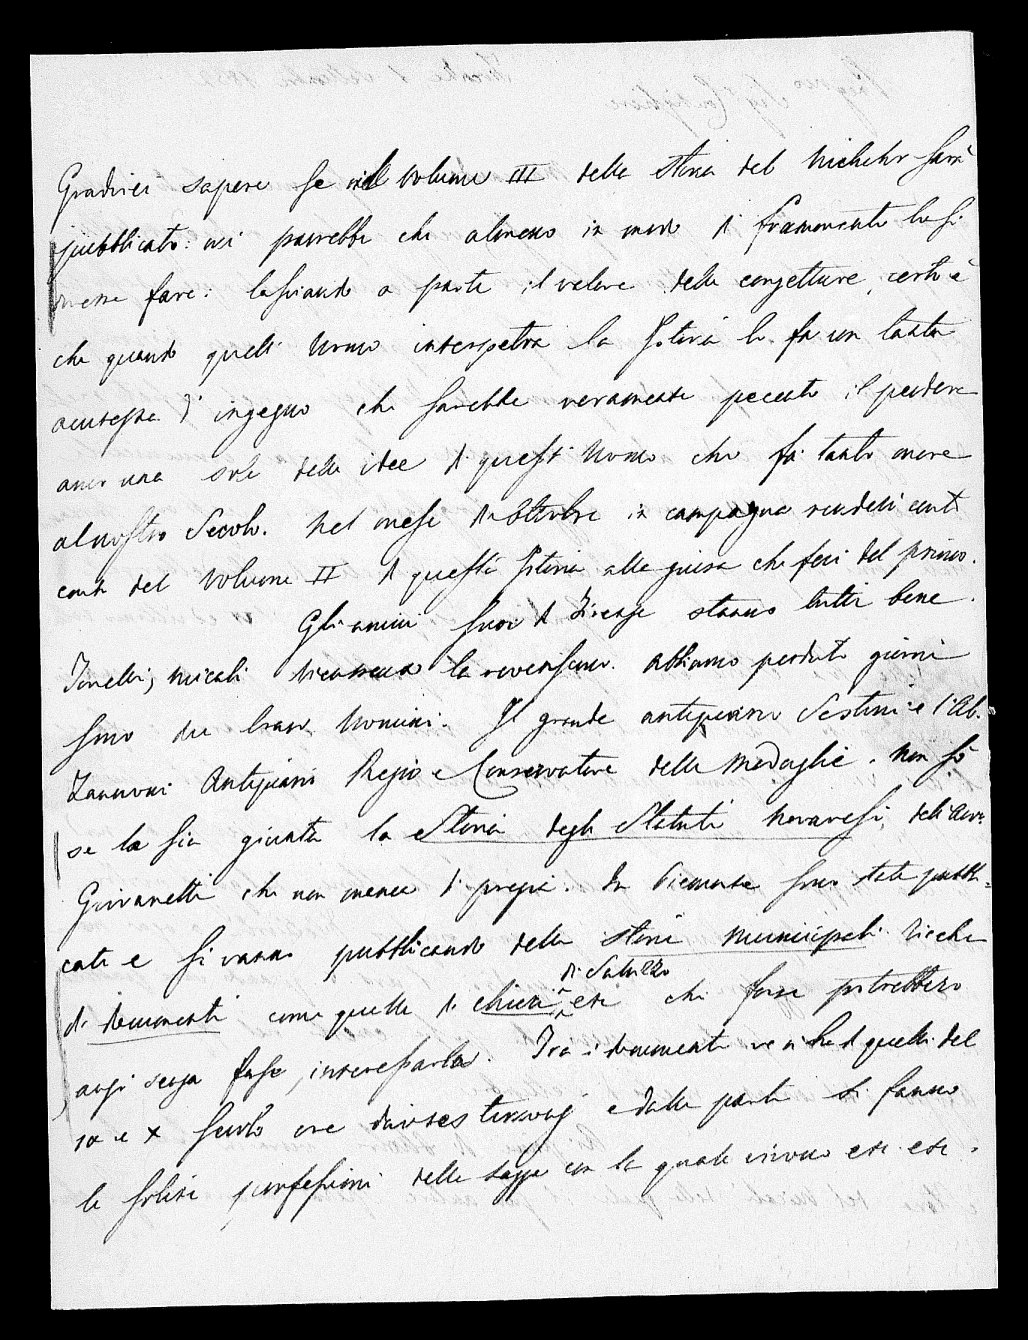 Gradirei sapere se il Volume III della Storia del Niebuhr sarà
pubblicato: mi parrebbe che almeno in modo di frammento lo si
dovesse fare: lasciando a parte il valore delle congetture, certo è
che quando quell' Uomo interpetra la Storia lo fa con tanta
acutezza d' ingegno che sarebbe veramente peccato il perdere
anco una sola delle idee di quest' Uomo che fa tanto onore
al nostro Secolo. Nel mese di Ottobre in campagna renderò conto
conto del Volume II di questa Istoria alla guisa che feci del primo.
Gli amici suoi di Firenze stanno tutti bene.
Micali la riveriscono. Abbiamo perduti giorni
sono due bravi Uomini. Il grande antiquario Sestini e l'Ab.
Zannoni Antiquario Regio e Conservatore delle Medaglie. Non so
se le sia giunta la Storia degli Statuti Novaresi, dell'Avv.
Giovanetti che non manca di pregio. In Piemonte sono state pubbli=
cate e si vanno pubblicando delle storie Municipali ricche
di documenti come quelle di Chieri, di Saluzzo etc che forse potrebbero
anzi senza forse, interessarla. Tra i documenti ve n'ha di quelli del
10 e X Secolo ove e dalle parti si fanno
le solite professioni della legge con la quale vivono etc. etc.